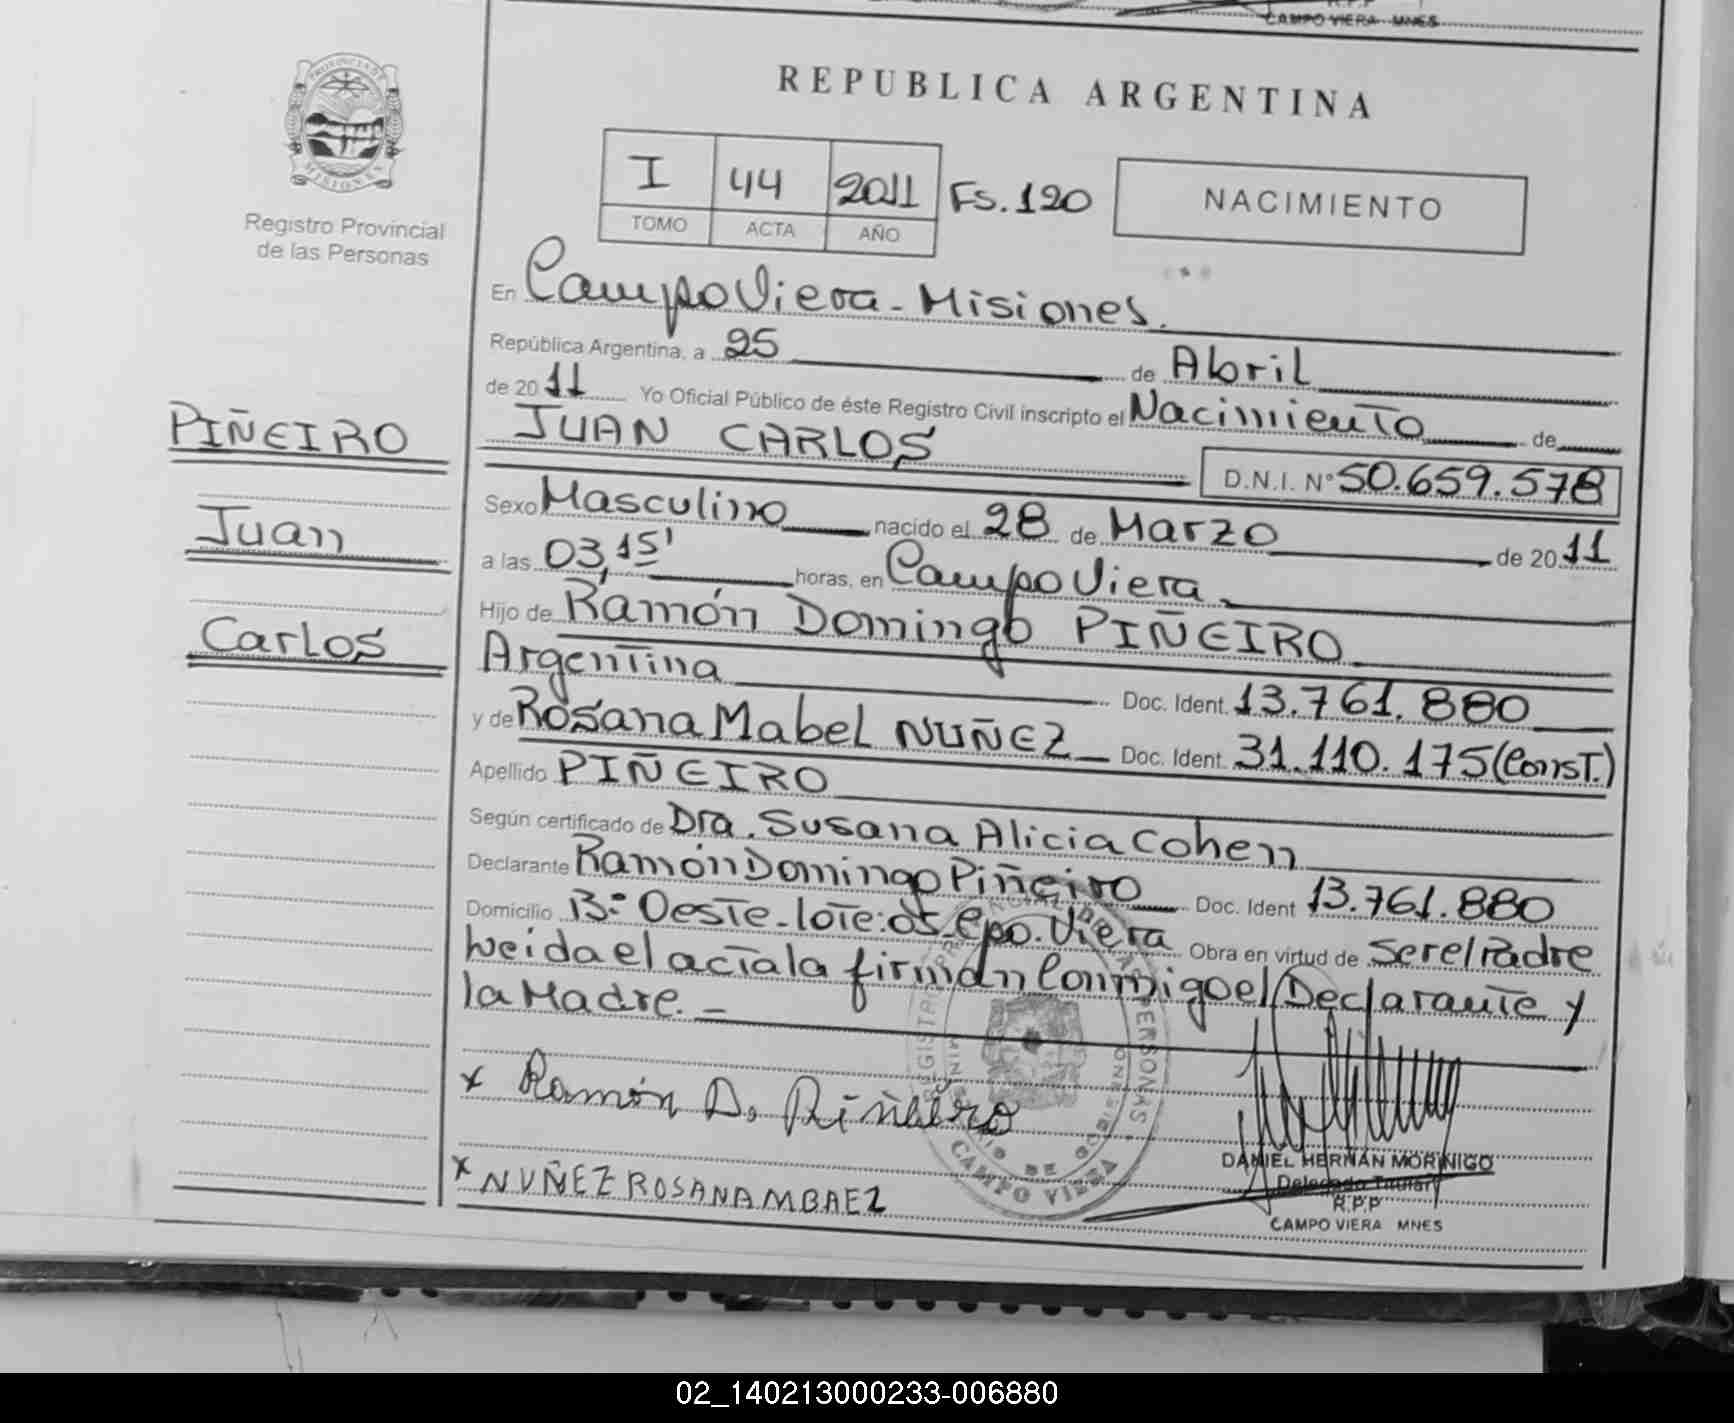 CAMPO VIERA MNES
PROVINCIA DE
MISIONES
Registro Provincial
de las Personas
REPUBLICA ARGENTINA
I 44 2011 Fs. 120
TOMO ACTA AÑO
NACIMIENTO
En Campo Viera - Misiones.
República Argentina, a 25 de Abril
de 2011 Yo Oficial Público de éste Registro Civil inscripto el Nacimiento de
JUAN CARLOS
D.N.I. N° 50.659.578
PIÑEIRO
Juan
Carlos
Sexo Masculino nacido el 28 de Marzo de 2011
a las 03,15' horas, en Campo Viera
Hijo de Ramón Domingo PIÑEIRO
Argentina Doc. Ident. 13.761.880
y de Rosana Mabel NUÑEZ Doc. Ident. 31.110.175 (Const.)
Apellido PIÑEIRO
Según certificado de Dra. Susana Alicia Cohen
Declarante Ramón Domingo Piñeiro Doc. Ident 13.761.880
Domicilio B:º Oeste - lote: 05 - Cpo. Viera Obra en virtud de ser el Padre
leida el acta la firman Conmigo el Declarante y
la Madre. -
x Ramón D. Piñeiro
x NUÑEZ ROSANA MBAEZ
CAMPO VIERA
DANIEL HERNÁN MORINIGO
Delegado Titular
R.P.P
CAMPO VIERA MNES
02_140213000233-006880